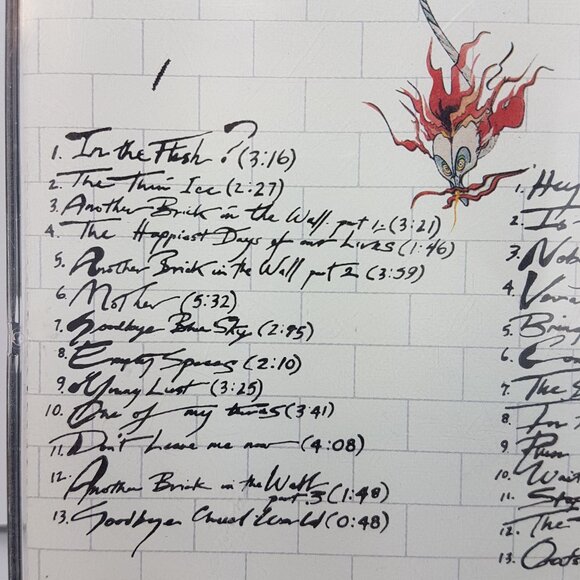 1
1. In the Flesh? (3:16)
2. The Thin Ice (2:27)
3. Another Brick in the Wall part 1 (3:21)
4. The Happiest Days of our Lives (1:46)
5. Another Brick in the Wall part 2 (3:59)
6. Mother (5:32)
7. Goodbye Blue Sky (2:45)
8. Empty Spaces (2:10)
9. Young Lust (3:25)
10. One of my turns (3:41)
11. Don't Leave me now (4:08)
12. Another Brick in the Wall
part 3 (1:48)
13. Goodbye Cruel World (0:48)
1. Hey
2. Is
3. Nob
4. Vera
5. Bring
6. Com
7. The S
8. In
9. Run
10. Wait
11. Stop
12. The T
13. Outs